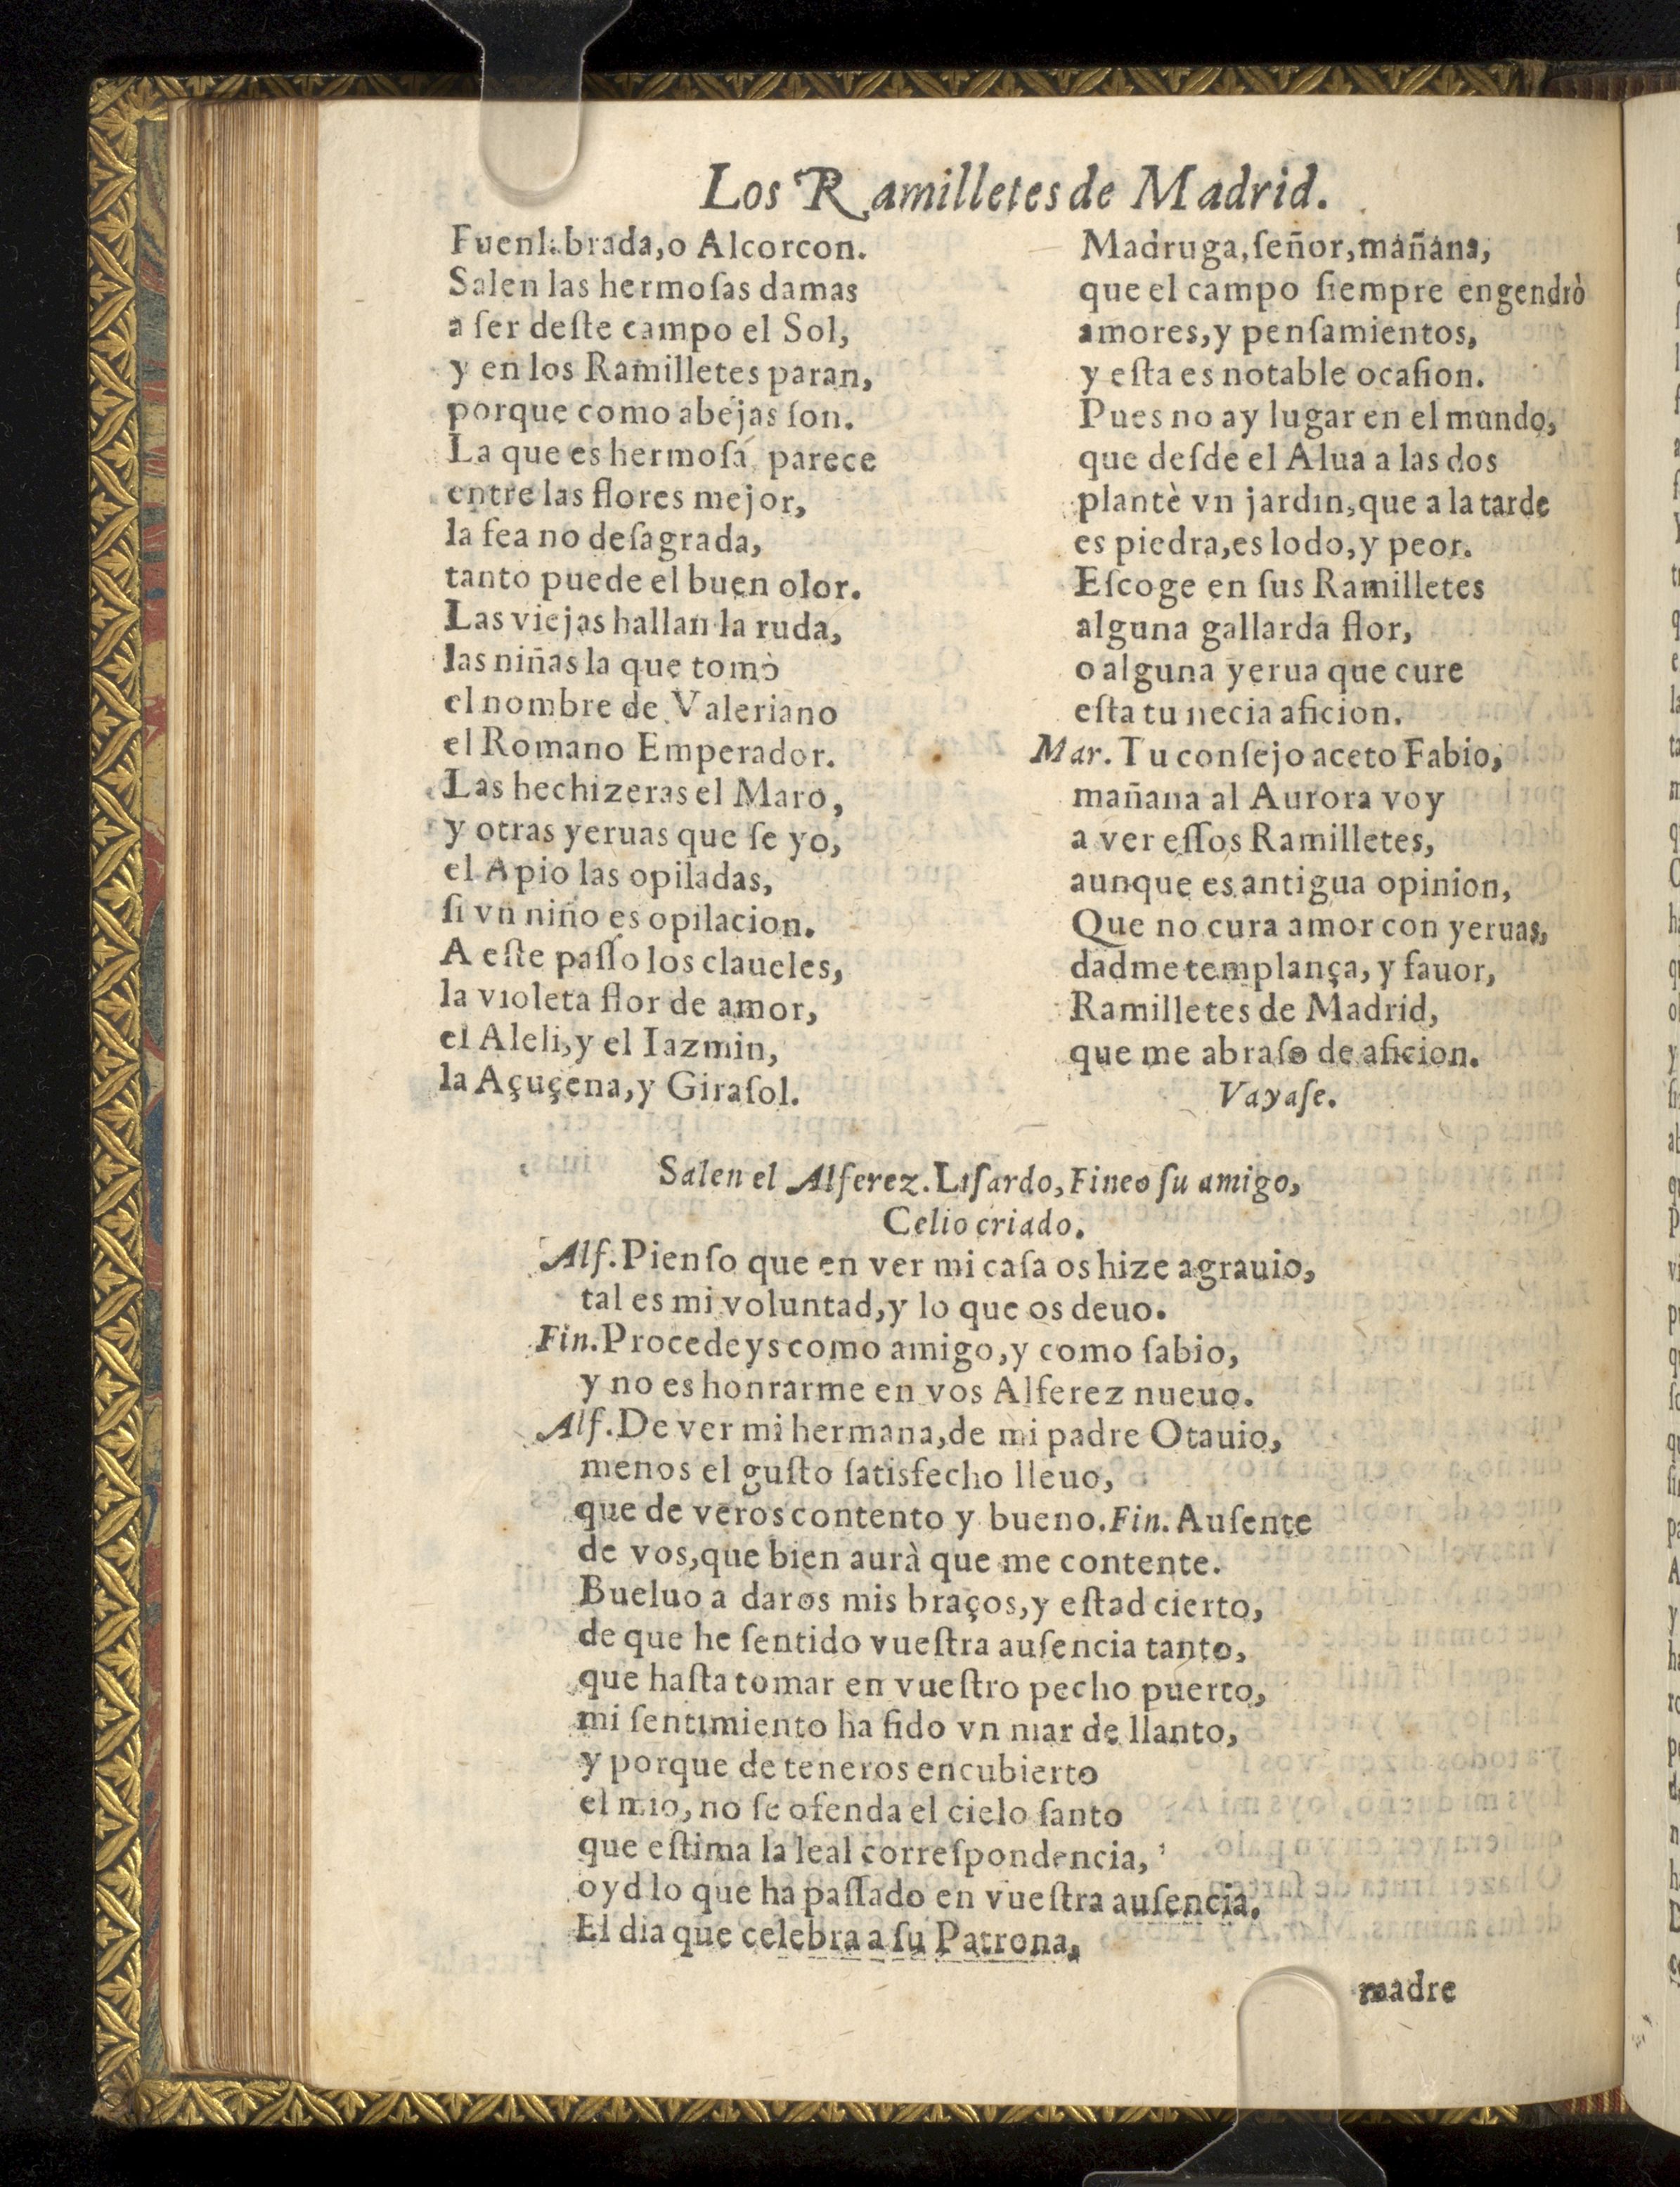 Los Ramilletes de Madrid.
Fuenlabrada, o Alcorcon.
Salen las hermoſas damas
a ſer deſte campo el Sol,
y en los Ramilletes paran,
porque como abejas ſon.
La que es hermoſa parece
entre las flores mejor,
la fea no deſagrada,
tanto puede el buen olor.
Las viejas hallan la ruda,
las niñas la que tomò
el nombre de Valeriano
el Romano Emperador.
Las hechizeras el Maro,
y otras yeruas que ſe yo,
el Apio las opiladas,
ſi vn niño es opilacion.
A eſte paſſo los claueles,
la violeta flor de amor,
el Aleli, y el Iazmin,
la Açuçena, y Giraſol.
Madruga, ſeñor, mañana,
que el campo ſiempre engendrò
amores, y penſamientos,
y eſta es notable ocaſion.
Pues no ay lugar en el mundo,
que deſde el Alua a las dos
plantè vn jardin, que a la tarde
es piedra, es lodo, y peor.
Eſcoge en ſus Ramilletes
alguna gallarda flor,
o alguna yerua que cure
eſta tu necia aficion.
Mar. Tu conſejo aceto Fabio,
mañana al Aurora voy
a ver eſſos Ramilletes,
aunque es antigua opinion,
Que no cura amor con yeruas,
dadme templança, y fauor,
Ramilletes de Madrid,
que me abraſo de aficion.
Vayaſe.
Salen el Alferez. Liſardo, Fineo ſu amigo,
Celio criado.
Alf. Pienſo que en ver mi caſa os hize agrauio,
tal es mi voluntad, y lo que os deuo.
Fin. Procedeys como amigo, y como ſabio,
y no es honrarme en vos Alferez nueuo.
Alf. De ver mi hermana, de mi padre Otauio,
menos el guſto ſatisfecho lleuo,
que de veros contento y bueno. Fin. Auſente
de vos, que bien aurà que me contente.
Bueluo a daros mis braços, y eſtad cierto,
de que he ſentido vueſtra auſencia tanto,
que haſta tomar en vueſtro pecho puerto,
mi ſentimiento ha ſido vn mar de llanto,
y porque de teneros encubierto
el mio, no ſe ofenda el cielo ſanto
que eſtima la leal correſpondencia,
oyd lo que ha paſſado en vueſtra auſencia.
El dia que celebra a ſu Patrona,
madre